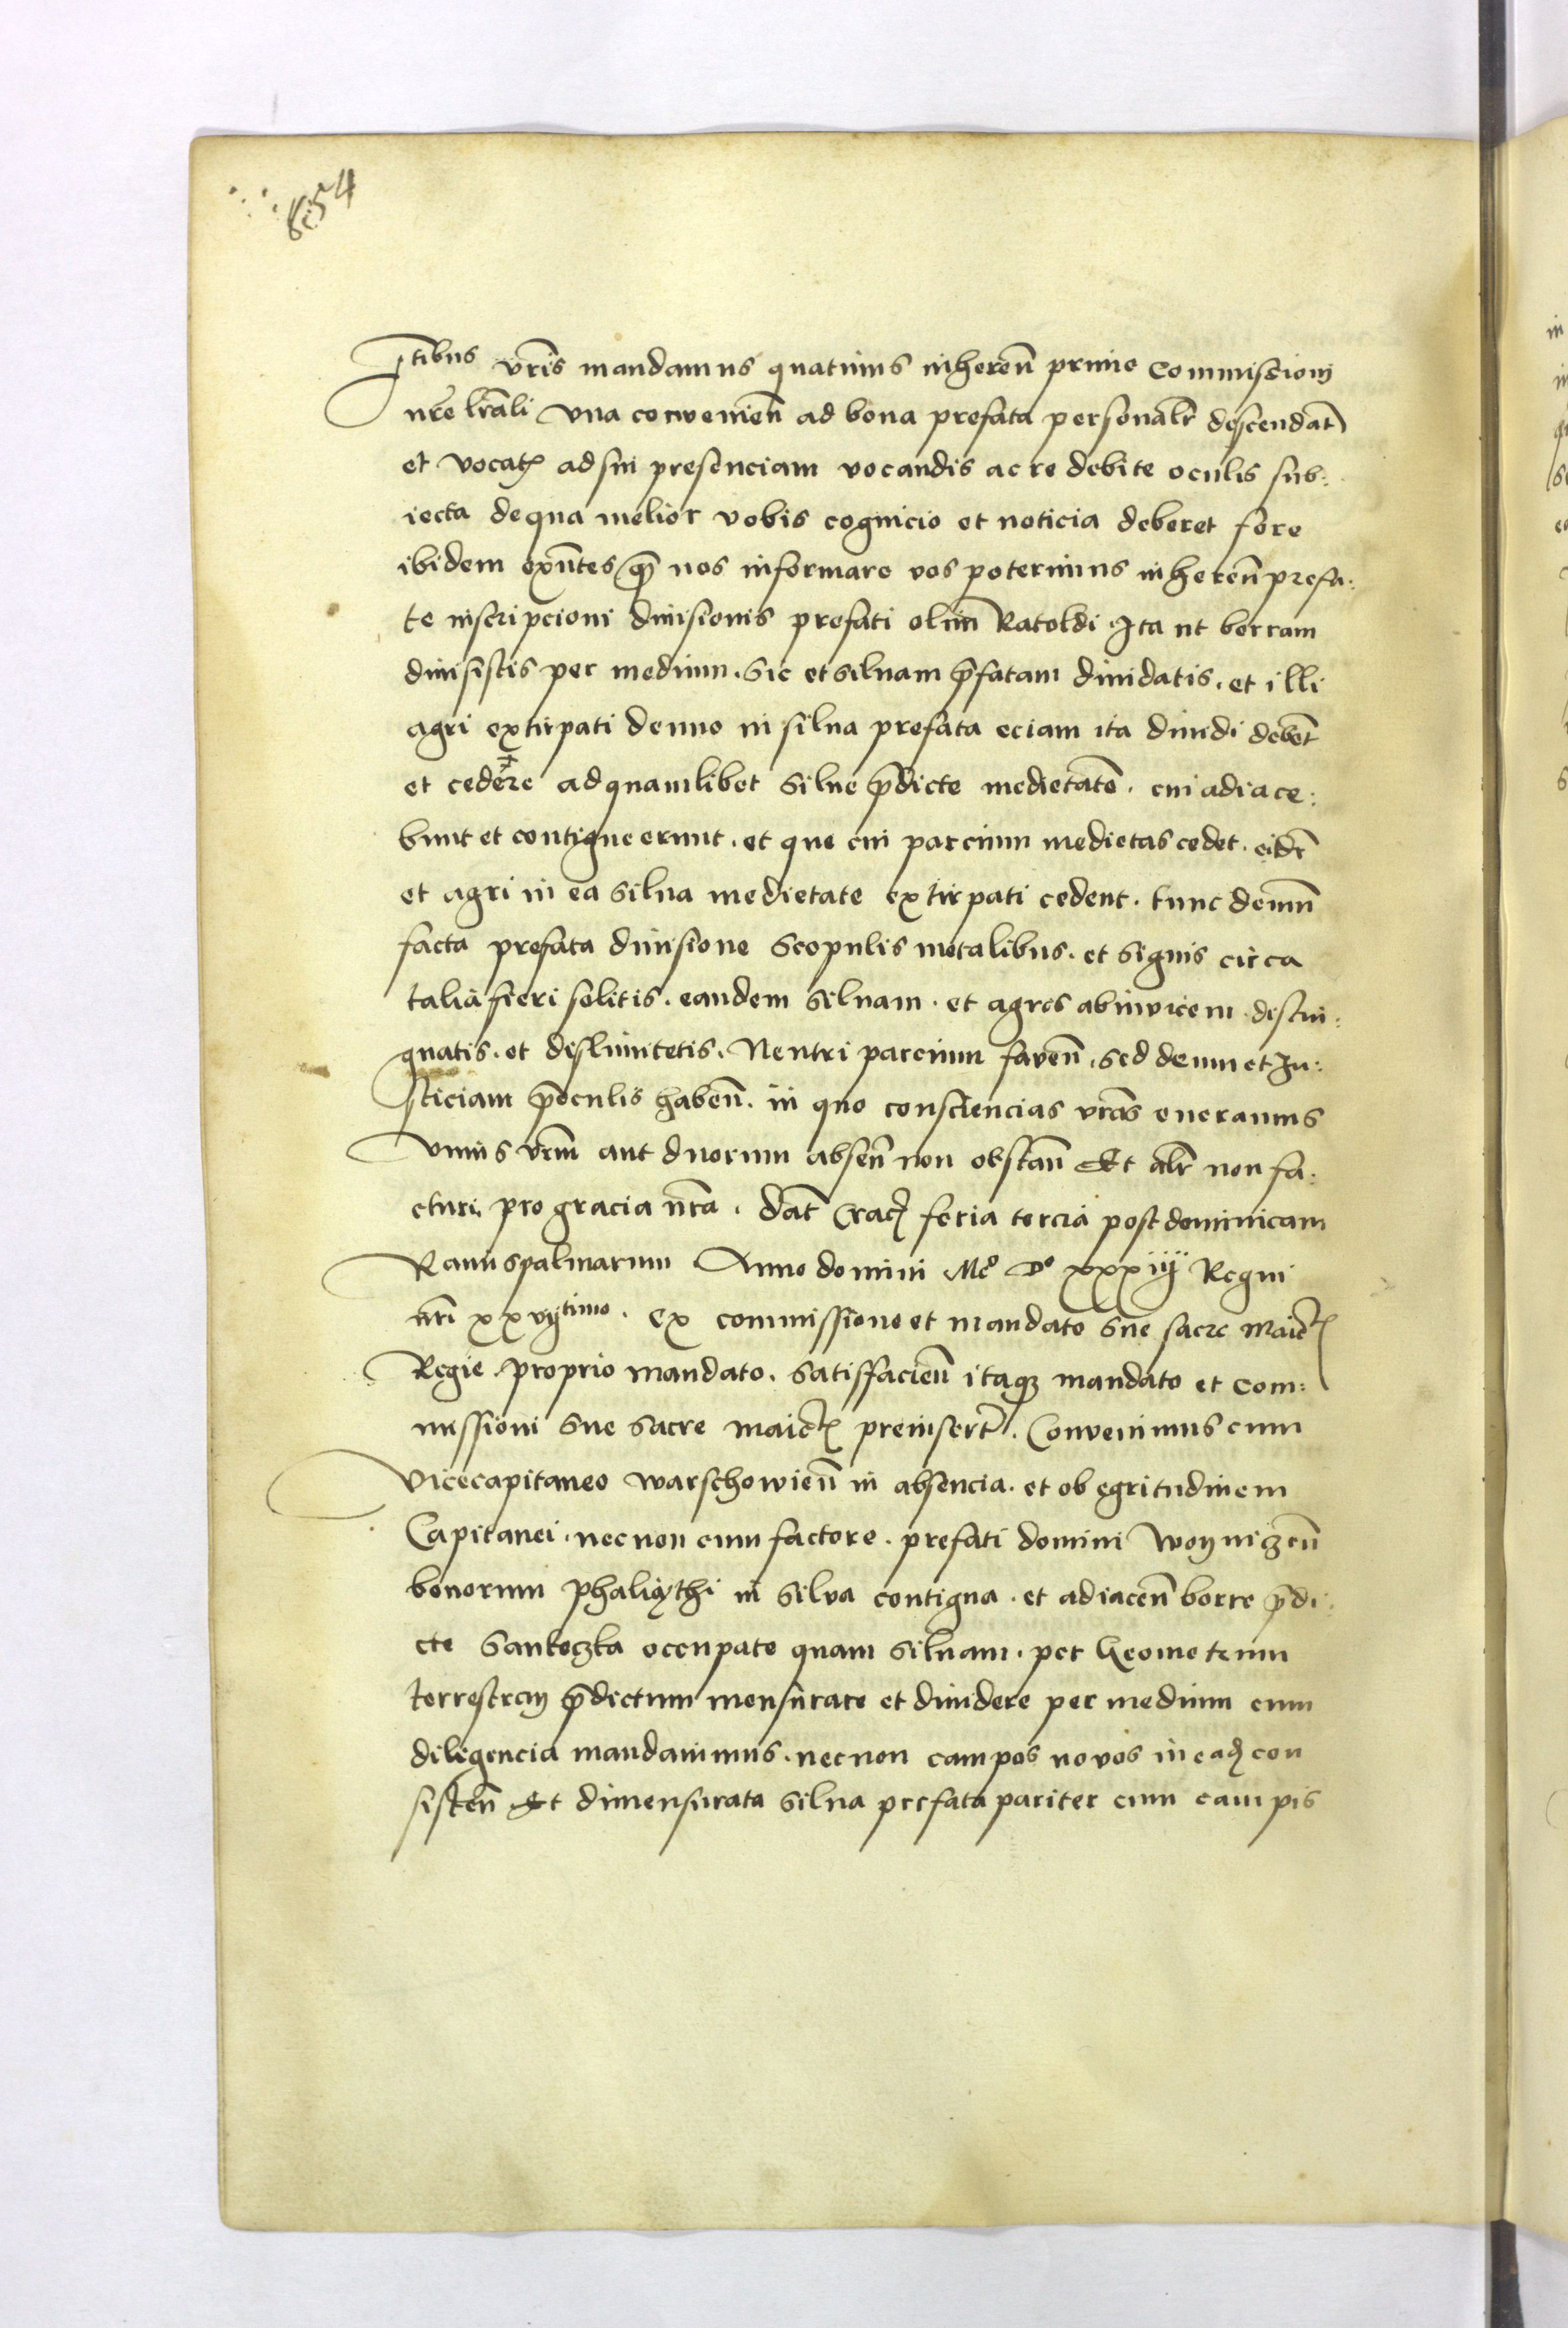 654
stibus vr̃is mandamus quatinus inheren̄ prime Commissionj
nr̃e lr̃ali vna convenien̄ ad bona prefata personalr̃ descendat̃
et vocat̃ ad sui presenciam vocandis ac re debite oculis sub:
iecta de qua melior vobis cognicio et noticia deberet fore
ibidem exn̄tes q̃ nos informare vos poterimus inheren̄ prefa:
te inscripcioni diuisionis prefati olim̄ Ratoldi Ita ut borram
diuisistis per medium. Sic et siluam p̄fatam diuidatis. et illi
agri extirpati denuo in silua prefata eciam ita diuidi debēt
et cedere ad quamlibet Silue p̄dicte medietatē. cui adiace:
bunt et contigue erunt. et que cui parcium medietas cedet. eidē
et agri in ea silua medietate extirpati cedent. tunc demū
facta prefata diuisione Scopulis metalibus. et signis circa
talia fieri solitis. eandem Siluam. et agros abinvicem distin:
guatis. et deslimitetis. Neutri parcium faven̄. sed deum et Iu:
sticiam p̄ oculis haben̄. in quo consciencias vr̃as oneramus
Vnius vr̃m aut duorum absen̄ non obstan̄ Et alr̃ non fa:
cturi pro gracia nr̃a. Dat̃ Crac̃ feria tercia post dominicam
Ramispalmarum Anno domini Mo Do xxxiij Regni
nr̃i xxvijtimo. ex commissione et mandato Sue sacre Maiet̃
Regie proprio mandato. Satisfacien̄ itaqz mandato et Com:
missioni Sue Sacre maiet̃ preinsert̃. Convenimus cum
Vicecapitaneo warschowien̄ in absencia. et ob egritudinem
Capitanei. necnon cum factore. prefati domini Woyniczen̄
bonorum phaliythi in Silva contigua. et adiacen̄ borre p̄di:
cte Santoczka occupate quam Siluam. per Geometrum
terrestrem p̄dictum mensurare et diuidere per medium cum
diligencia mandauimus. necnon campos novos in ead̃ con
sisten̄ Et dimensurata Silua prefata pariter cum campis